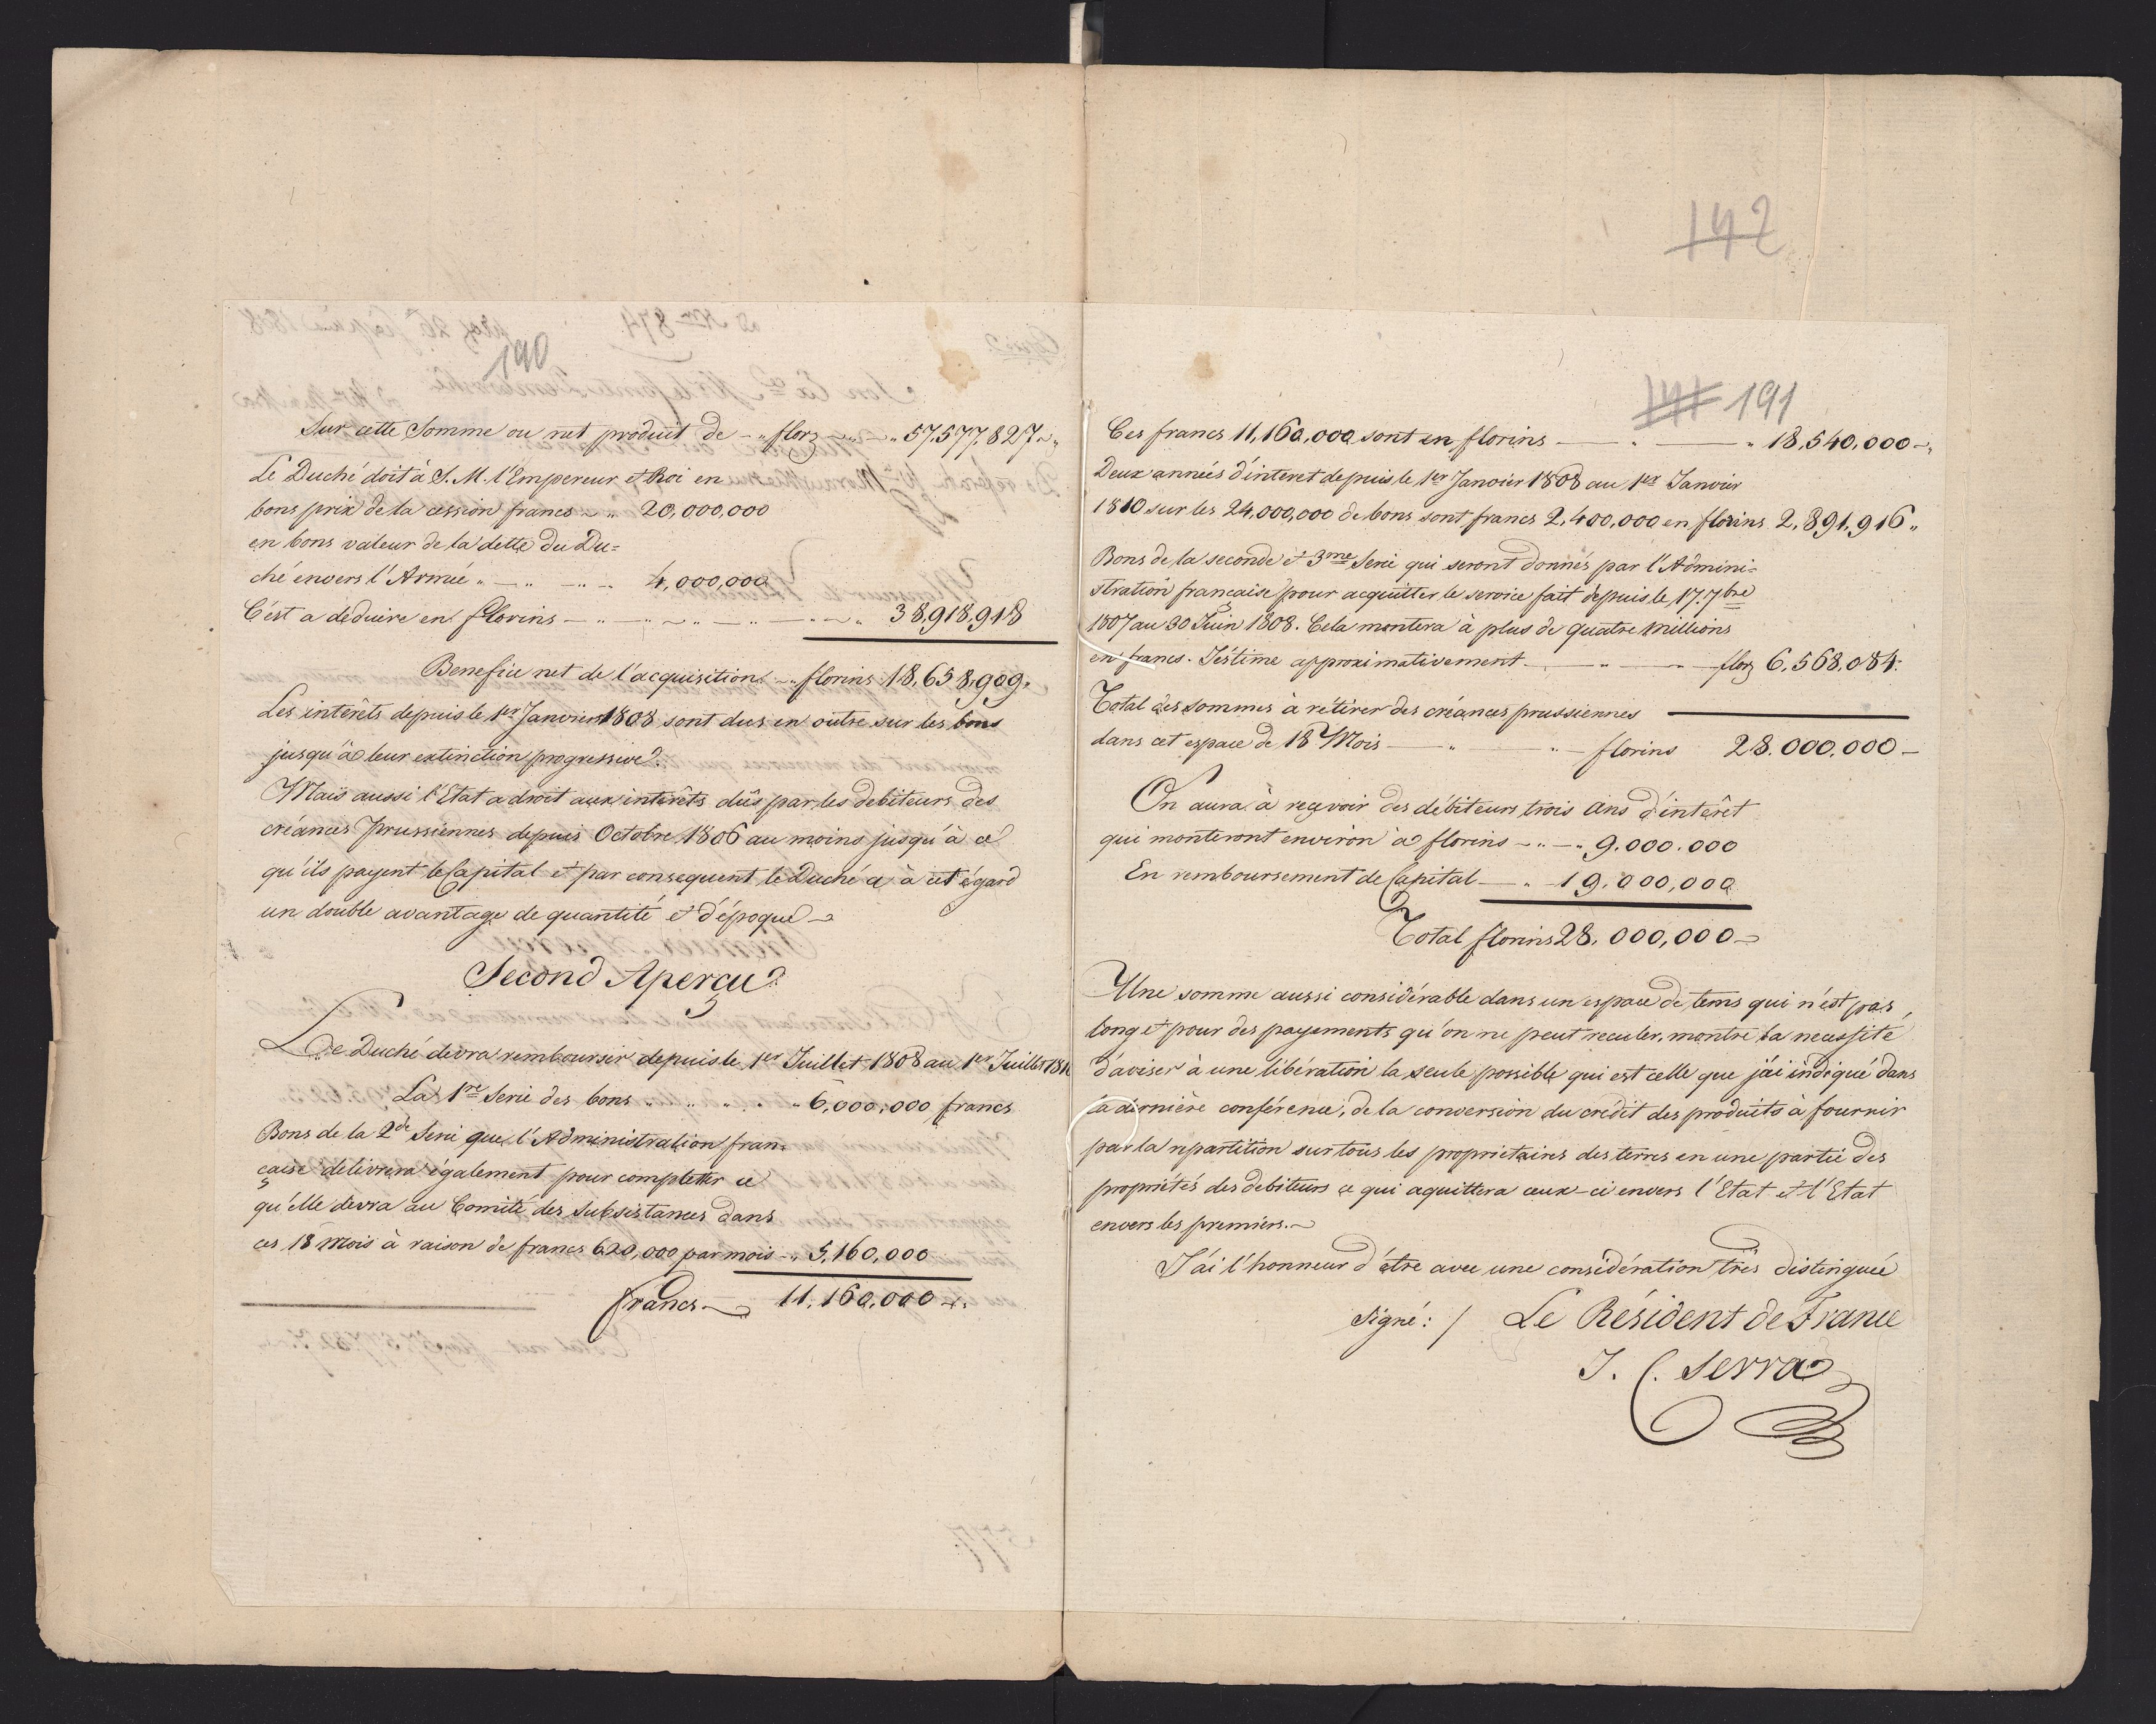 190
Sur cette Somme ou net produit de - „ florz - „ - „ 57,577,827 „
Le Duché doit à S. M. l'Empereur et Roi en
bons prix de la cession francs - „ 20,000,000
en bons valeur de la dette du Du=
ché envers l'Armée „ — „ — „ — 4,000,000
C'est a deduire en florins — „ — „ — „ — „ 38,918,918
Benefice net de l'acquisition - „ florins 18,658,909 „
Les intérêts depuis le 1er Janvier 1808 sont dus en outre sur les bons
jusqu'à leur extinction progressive.
Mais aussi l'Etat a droit aux intérêts dûs par les debiteurs des
créances Prussiennes depuis Octobre 1806 au moins jusqu'à ce
qu'ils payent le Capital et par consequent le Duché a à cet égard
un double avantage de quantité et d'époque -
Second Aperçu
Le Duché devra rembourser depuis le 1er Juillet 1808 au 1er Juillet 1810
La 1re Serie des bons „ „ „ „ 6,000,000 francs
Bons de la 2de Serie que l'Administration fran=
çaise delivrera également pour completter ce
qu'elle devra au Comité des Subsistances dans
ces 18 Mois à raison de francs 620,000 par mois - „ 5,160,000
francs - 11,160,000 -
142
141 191
Ces francs 11,160,000 sont en florins — „ — „ 18,540,000 -
Deux années d'interet depuis le 1er Janvier 1808 au 1er Janvier
1810 sur les 24,000,000 de bons sont francs 2,400,000 en florins 2,891,916 „
Bons de la seconde et 3me Serie qui seront donnés par l'Admini=
stration francaise pour acquitter le service fait depuis le 17. 7bre
1807 au 30 Juin 1808. Cela montera à plus de quatre Millions
en francs. J'estime approximativement — „ — florz 6,568,084.
Total des sommes à rétirer des créances prussiennes
dans cet espace de 18 Mois — „ — „ — florins 28.000,000 -
On aura à reçevoir des débiteurs trois ans d'intérêt
qui monteront environ à florins - „ — „ 9.000.000
En remboursement de Capital — „ - 19.000,000
Total florins 28,000,000 -
Une somme aussi considérable dans un espace de tems qui n'est pas
long et pour des payements qu'on ne peut reculer, montre la necessité
d'aviser à une libération la seule possible qui est celle que j'ai indiqué dans
la dernière conférence, de la conversion du credit des produits à fournir
par la repartition sur tous les proprietaires des terres en une partie des
propriétés des debiteurs ce qui aquittera ceux-ci envers l'Etat et l'Etat
envers les premiers. -
J'ai l'honneur d'être avec une considération très distinguée
Signé: / Le Résident de France
J. C. Serra